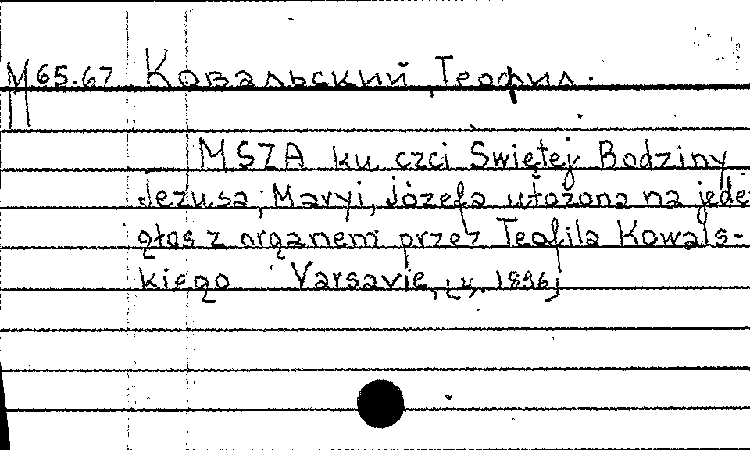 M 65.67 Ковальский, Теофил.
MSZA ku czci Świętej Rodziny
Jezusa, Maryi, Józefa ułożona na jede
głos z organem przez Teofila Kowals-
kiego Varsavie, [ц. 1896]